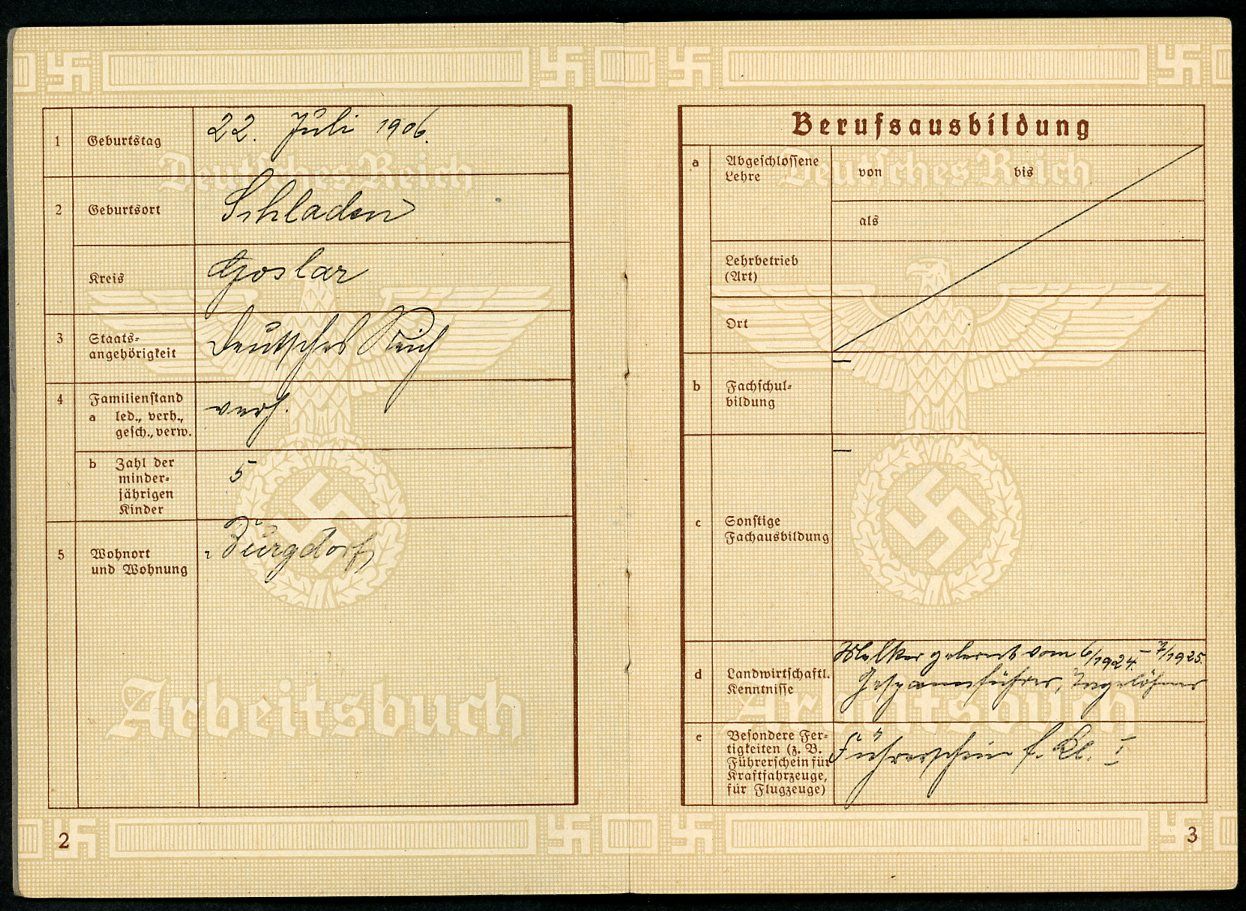 1 Geburtstag 22. Juli 1906.
Deutsches Reich
2 Geburtsort Schladen
Kreis Goslar
3 Staats-
angehörigkeit Deutsches Reich
4 Familienstand
a led., verh.,
gesch., verw. verh.
b Zahl der
minder-
jährigen
Kinder 5
5 Wohnort
und Wohnung Burgdorf
Arbeitsbuch
2
Berufsausbildung
a Abgeschlossene
Lehre von bis
Deutsches Reich
als
Lehrbetrieb
(Art)
Ort
b Fachschul-
bildung –
c Sonstige
Fachausbildung –
d Landwirtschaftl.
Kenntnisse
Melker gelernt vom 6/1924 – 7/1925.
Gespannführer, Tagelöhner
Arbeitsbuch
e Besondere Fer-
tigkeiten (z. B.
Führerschein für
Kraftfahrzeuge,
für Flugzeuge)
Führerschein f. Kl. I
3